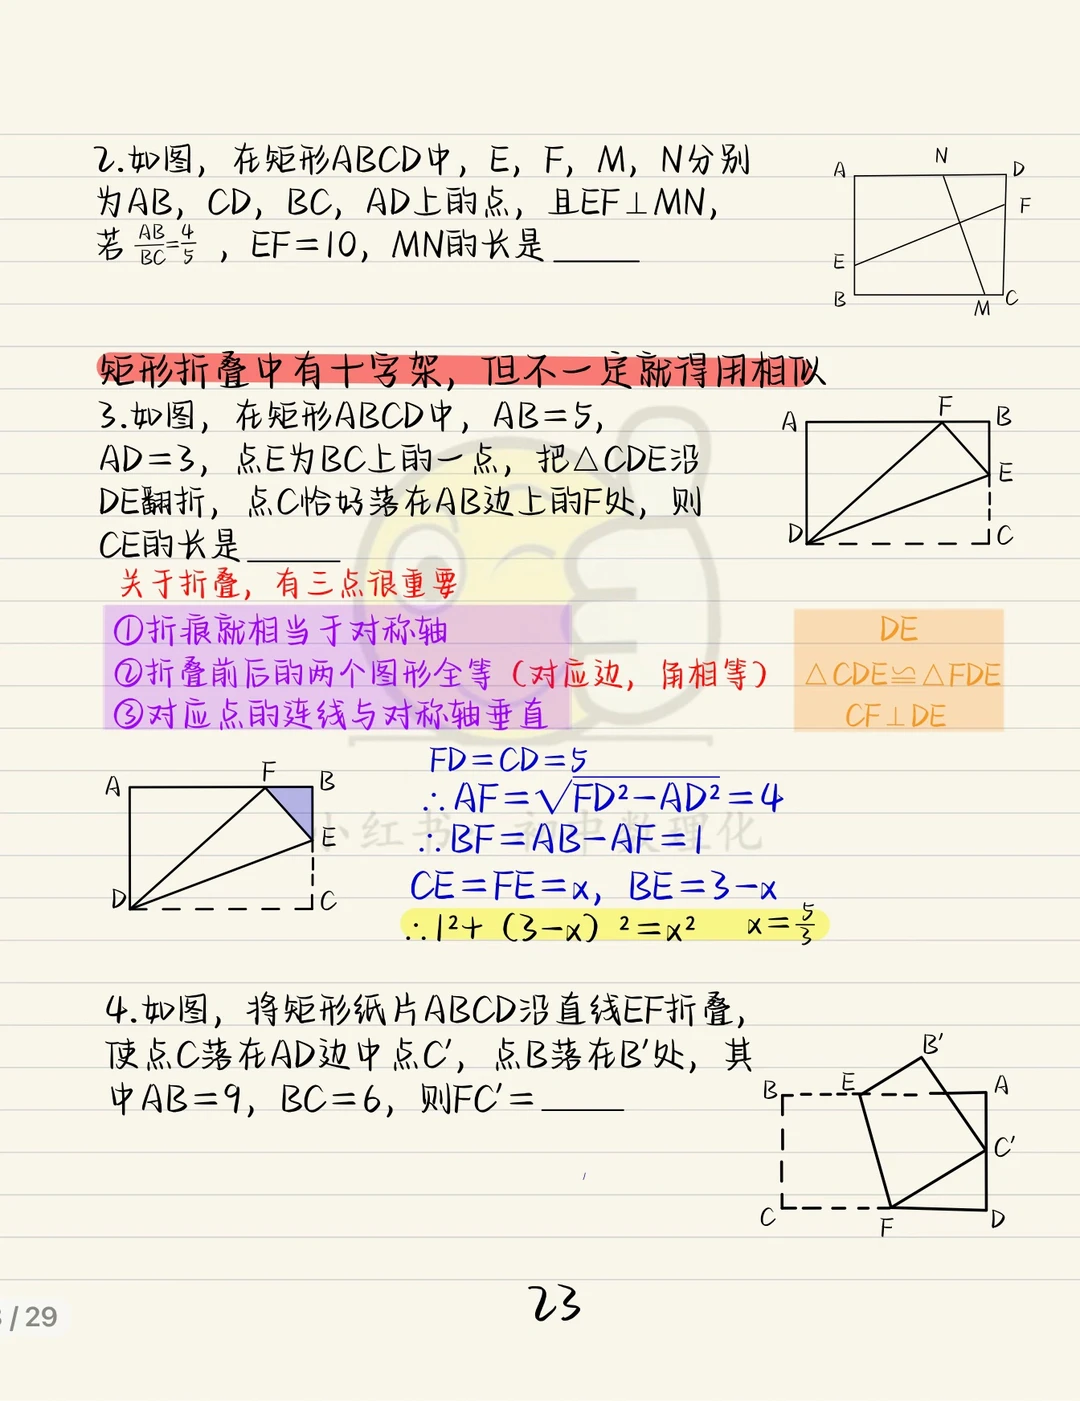 2.如图，在矩形ABCD中，E，F，M，N分别
为AB，CD，BC，AD上的点，且EF⊥MN，
若 AB/BC=4/5 ，EF=10，MN的长是_____
A N D
F
E
B M C
矩形折叠中有十字架，但不一定就得用相似
3.如图，在矩形ABCD中，AB=5，
AD=3，点E为BC上的一点，把△CDE沿
DE翻折，点C恰好落在AB边上的F处，则
CE的长是_____
A F B
E
D C
关于折叠，有三点很重要
①折痕就相当于对称轴
②折叠前后的两个图形全等（对应边，角相等）
③对应点的连线与对称轴垂直
DE
△CDE≌△FDE
CF⊥DE
A F B
E
D C
FD=CD=5
∴AF=√FD²-AD²=4
∴BF=AB-AF=1
CE=FE=x，BE=3-x
∴1²+（3-x）²=x² x=5/3
小红书 初中数理化
4.如图，将矩形纸片ABCD沿直线EF折叠，
使点C落在AD边中点C′，点B落在B′处，其
中AB=9，BC=6，则FC′=_____
B′
B E A
C′
C F D
23
/ 29